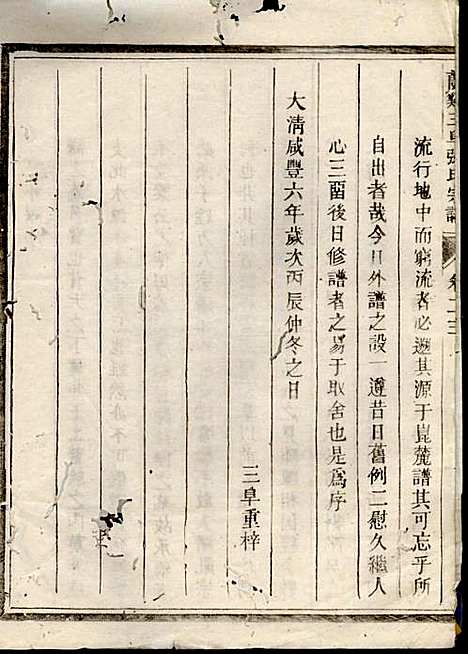 三阜張氏宗譜
卷二三
流行地中而窮流者必遡其源于崑麓譜其可忘乎所
自出者哉今日外譜之設一遵昔日舊例二慰久繼人
心三畱後日修譜者之易于取舍也是爲序
大清咸豐六年歲次丙辰仲冬之日
三阜重梓